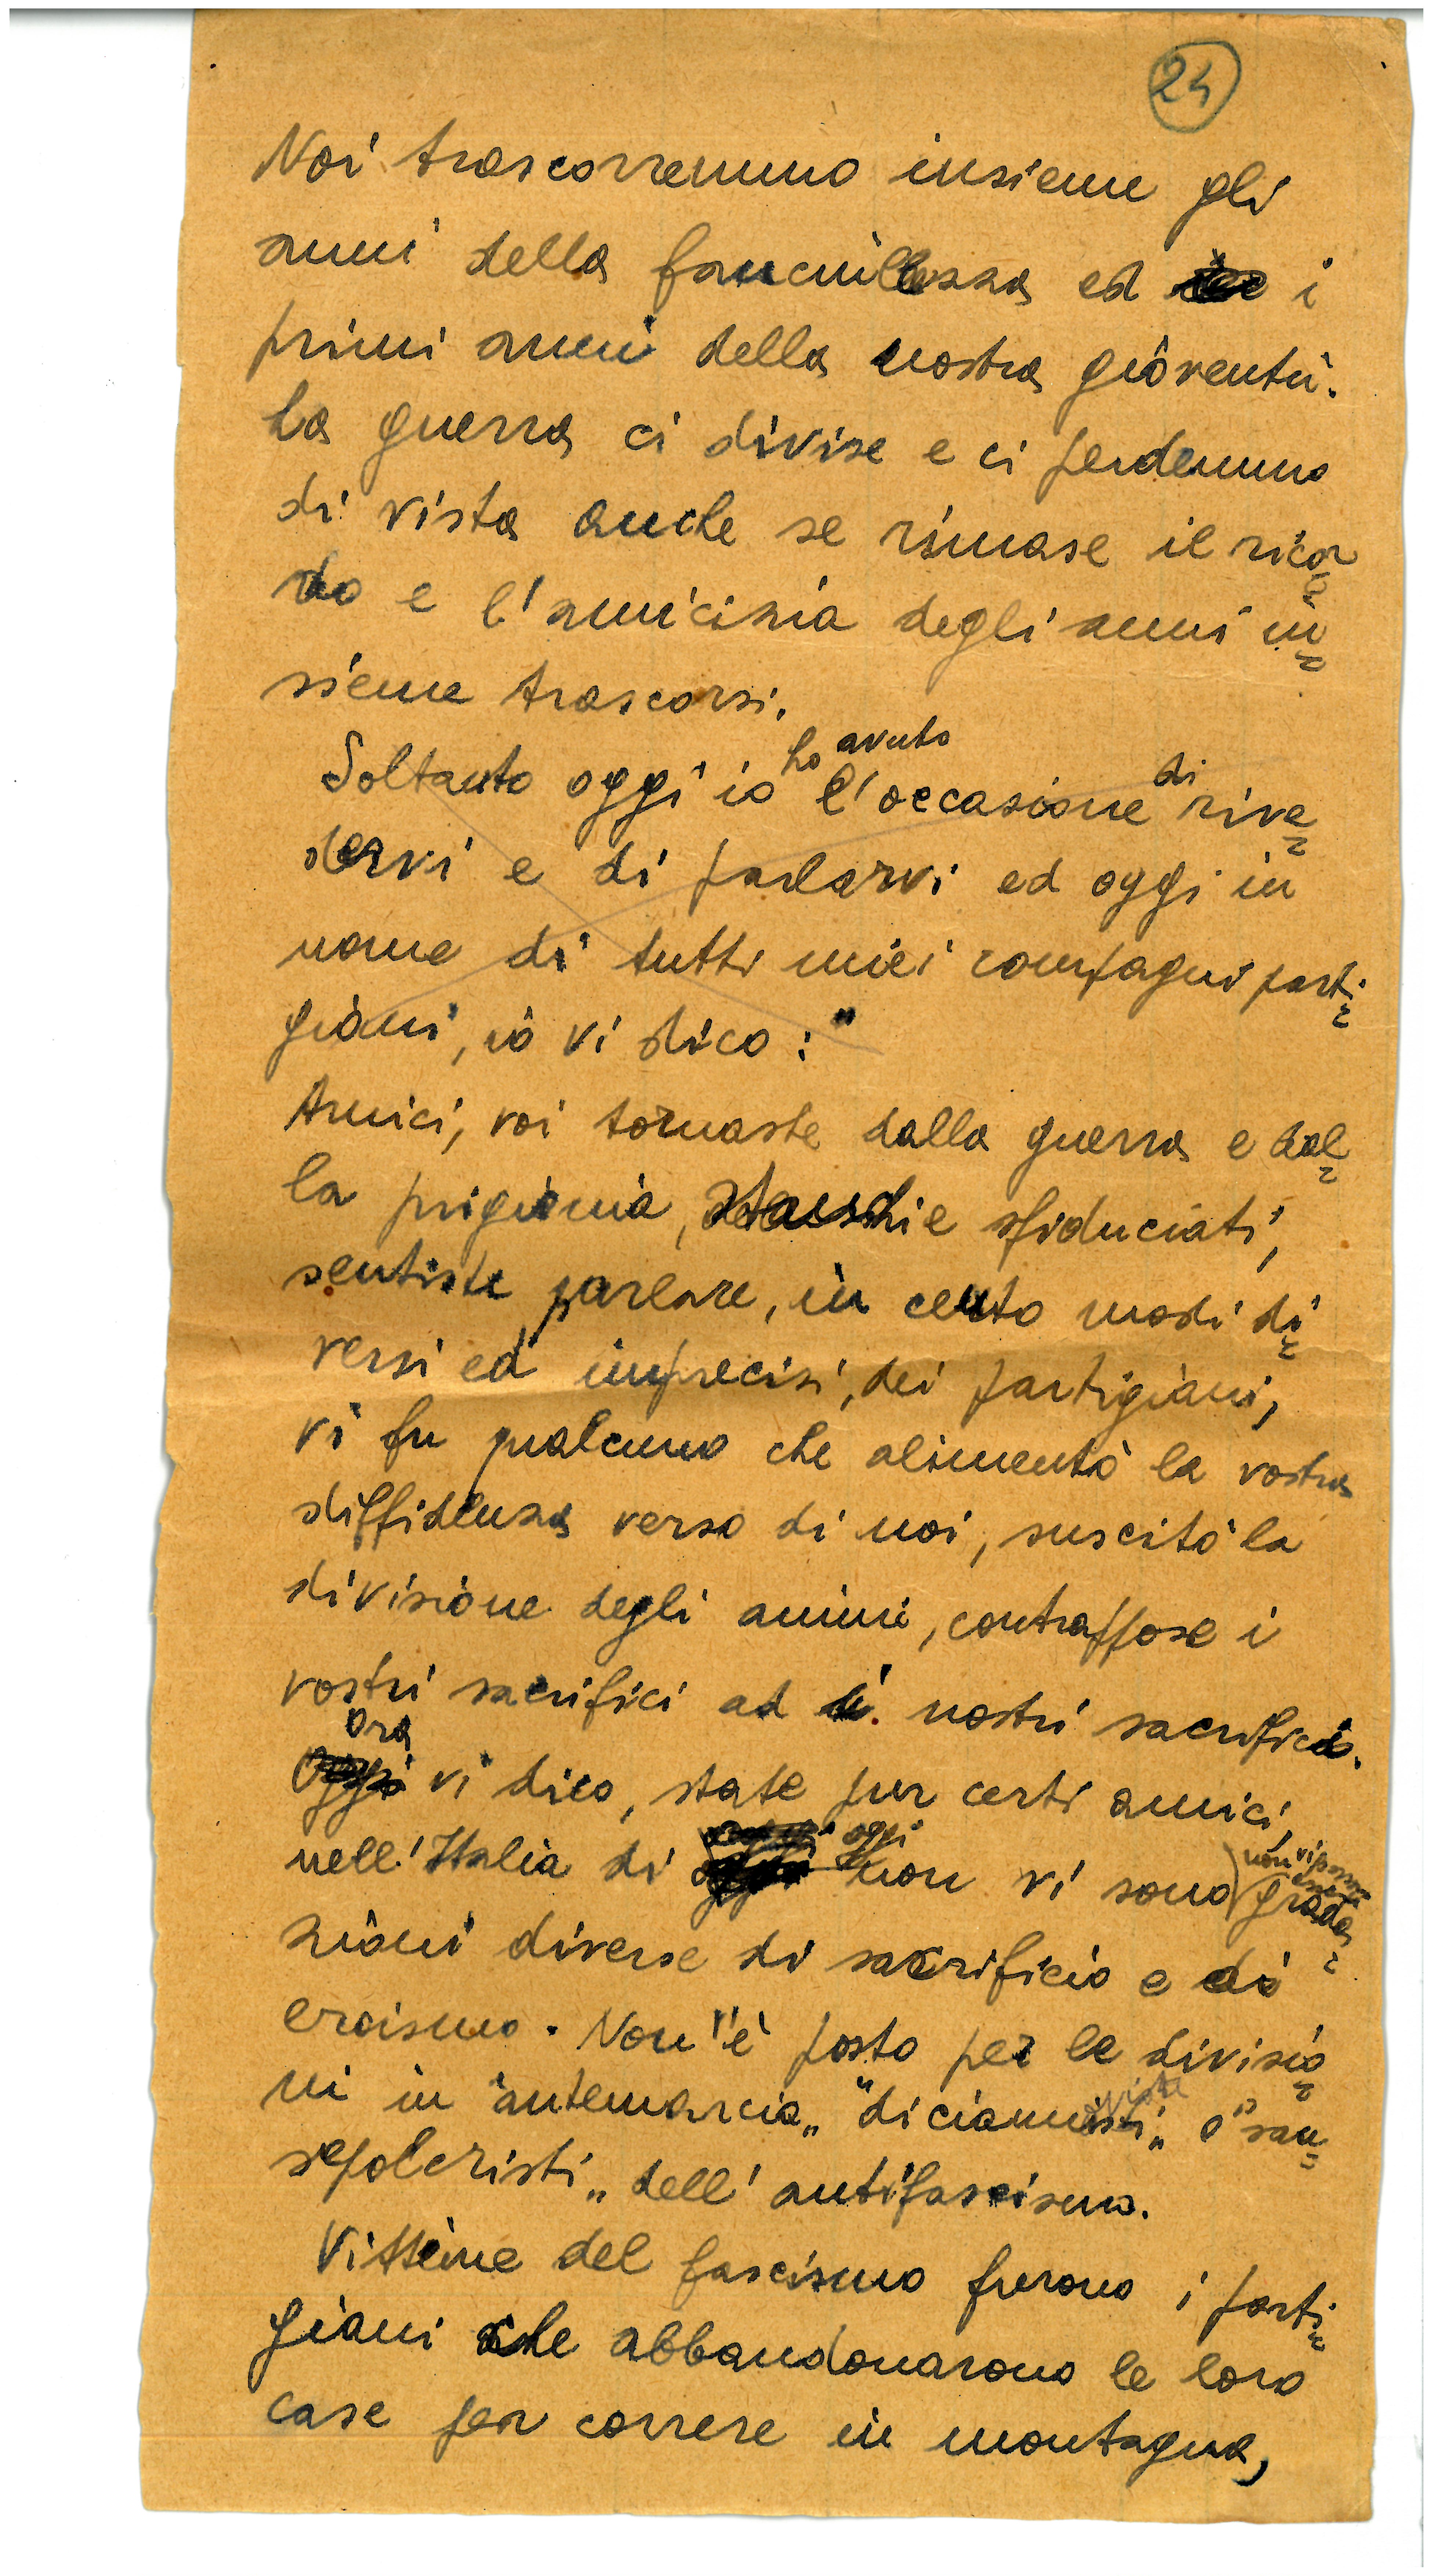 24
Noi trascorremmo insieme gli
anni della fanciullezza ed i
primi anni della nostra gioventù.
La guerra ci divise e ci perdemmo
di vista anche se rimase il ricor
do e l'amicizia degli anni in
sieme trascorsi.
Soltanto oggi io ho avuto l'occasione di rive
dervi e di parlarvi ed oggi in
nome di tutti miei compagni parti
giani, io vi dico: "
Amici, voi tornaste dalla guerra e dal
la prigionia, stanchi e sfiduciati,
sentiste parlare, in cento modi di
versi ed imprecisi, dei partigiani,
vi fu qualcuno che alimentò la vostra
diffidenza verso di noi, suscitò la
divisione degli animi, contrappose i
vostri sacrifici ad i nostri sacrifici.
Ora
Oggi vi dico, state pur certi amici,
nell'Italia di oggi non vi sono (non vi possono grada
zioni diverse di sacrificio e di
eroismo. Non "è posto per le divisio
ni in "antemarcia„ "diciannisti„ o "san
sepolcristi„ dell'antifascismo.
Vittime del fascismo furono i parti
giani che abbandonarono le loro
case per correre in montagna,